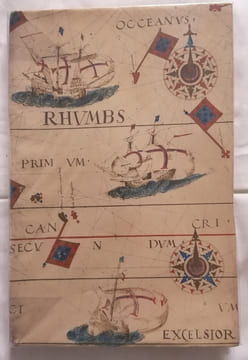 OCCEANVS
RHVMBS
PRIM VM
CAN CRI
SECV N DVM
CI VM
EXCELSIOR